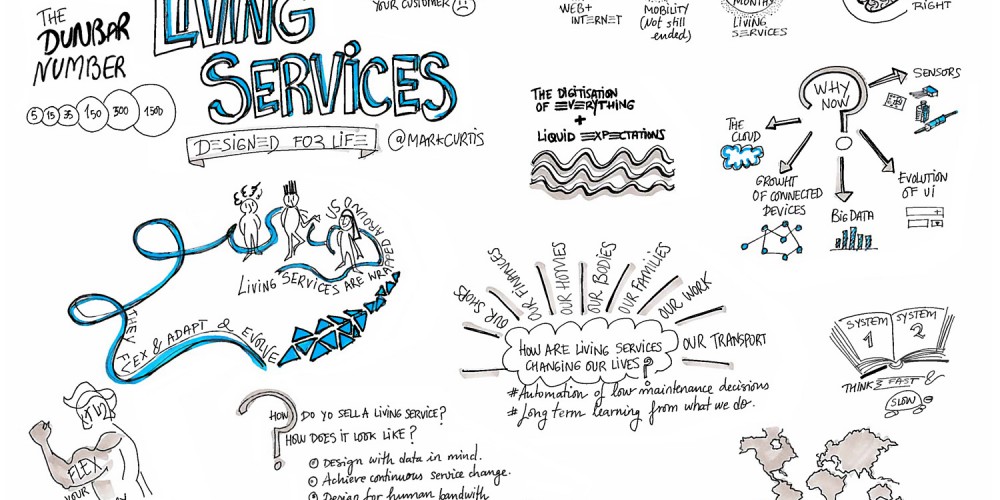 THE
DUNBAR
NUMBER
5 15 35 150 300 1500
LIVING
SERVICES
DESIGNED FOR LIFE
@MARKCURTIS
YOUR CUSTOMER
WEB+
INTERNET
MOBILITY
(Not still
ended)
MONTH
LIVING
SERVICES
RIGHT
THE DIGITISATION
OF EVERYTHING
+
LIQUID EXPECTATIONS
WHY
NOW
SENSORS
THE
CLOUD
GROWHT
OF CONNECTED
DEVICES
BIG DATA
EVOLUTION
OF UI
LIVING SERVICES ARE WRAPPED AROUND US
THEY FLEX & ADAPT & EVOLVE
OUR SHOPS
OUR FINANCES
OUR HOMES
OUR BODIES
OUR FAMILIES
OUR WORK
OUR TRANSPORT
HOW ARE LIVING SERVICES
CHANGING OUR LIVES?
#Automation of low maintenance decisions
#Long term learning from what we do.
SYSTEM
1
SYSTEM
2
THINK FAST &
SLOW
FLEX
YOUR
HOW DO YO SELL A LIVING SERVICE?
HOW DOES IT LOOK LIKE?
DESIGN with data in mind.
Achieve continuous service change.
Design for human bandwith